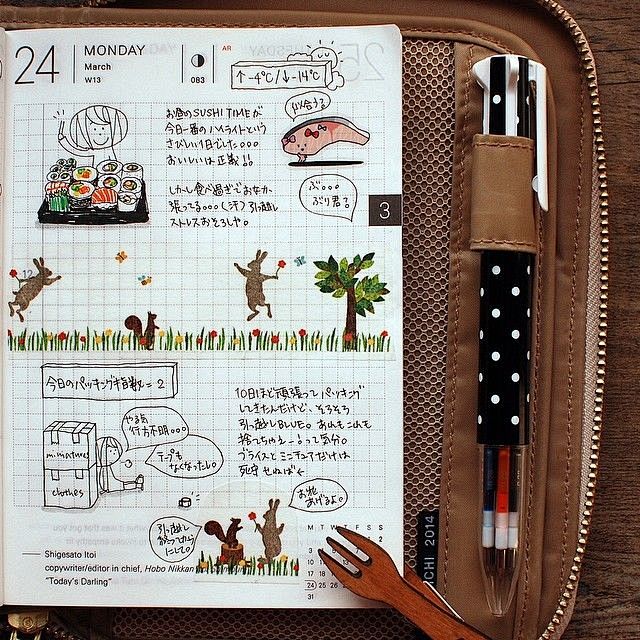 24
MONDAY
March
W13
083
AR
↑-4℃/↓-14℃
似合う?
お昼のSUSHI TIMEが
今日一番のハイライトという
さびしい1日でした。。。
おいしいは正義!!
ぶ。。。
ぶり君?
3
しかし食べ過ぎでおなか
張ってる。。。(汗)引っ越し
ストレスおそろしや。
12
今日のパッキング指数=2
やる気
行方不明。。。
テープも
なくなったし。
miniatures
clothes
10日ほど頑張ってパッキング
してきたんだけど、そろそろ
引っ越しBLUE。あれもこれも
捨てちゃえー!って気分。
ブライスとミニチュアだけは
死守せねば
お花
あげるよ。
引っ越し
終ってから
にして。
Shigesato Itoi
copywriter/editor in chief, Hobo Nikkan
"Today's Darling"
M T W T F S S
1 2
3
10
17
24
31
ICHI 2014